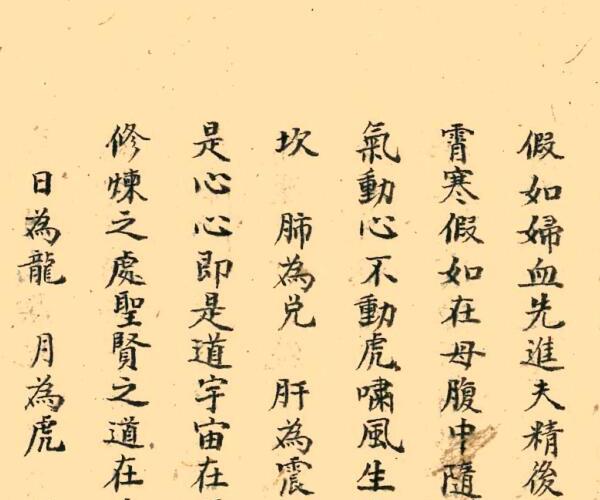 假如婦血先進夫精後
霄寒假如在母腹中隨
氣動心不動虎嘯風生
坎 肺為兌 肝為震
是心心即是道宇宙在
修煉之處聖賢之道在
日為龍 月為虎